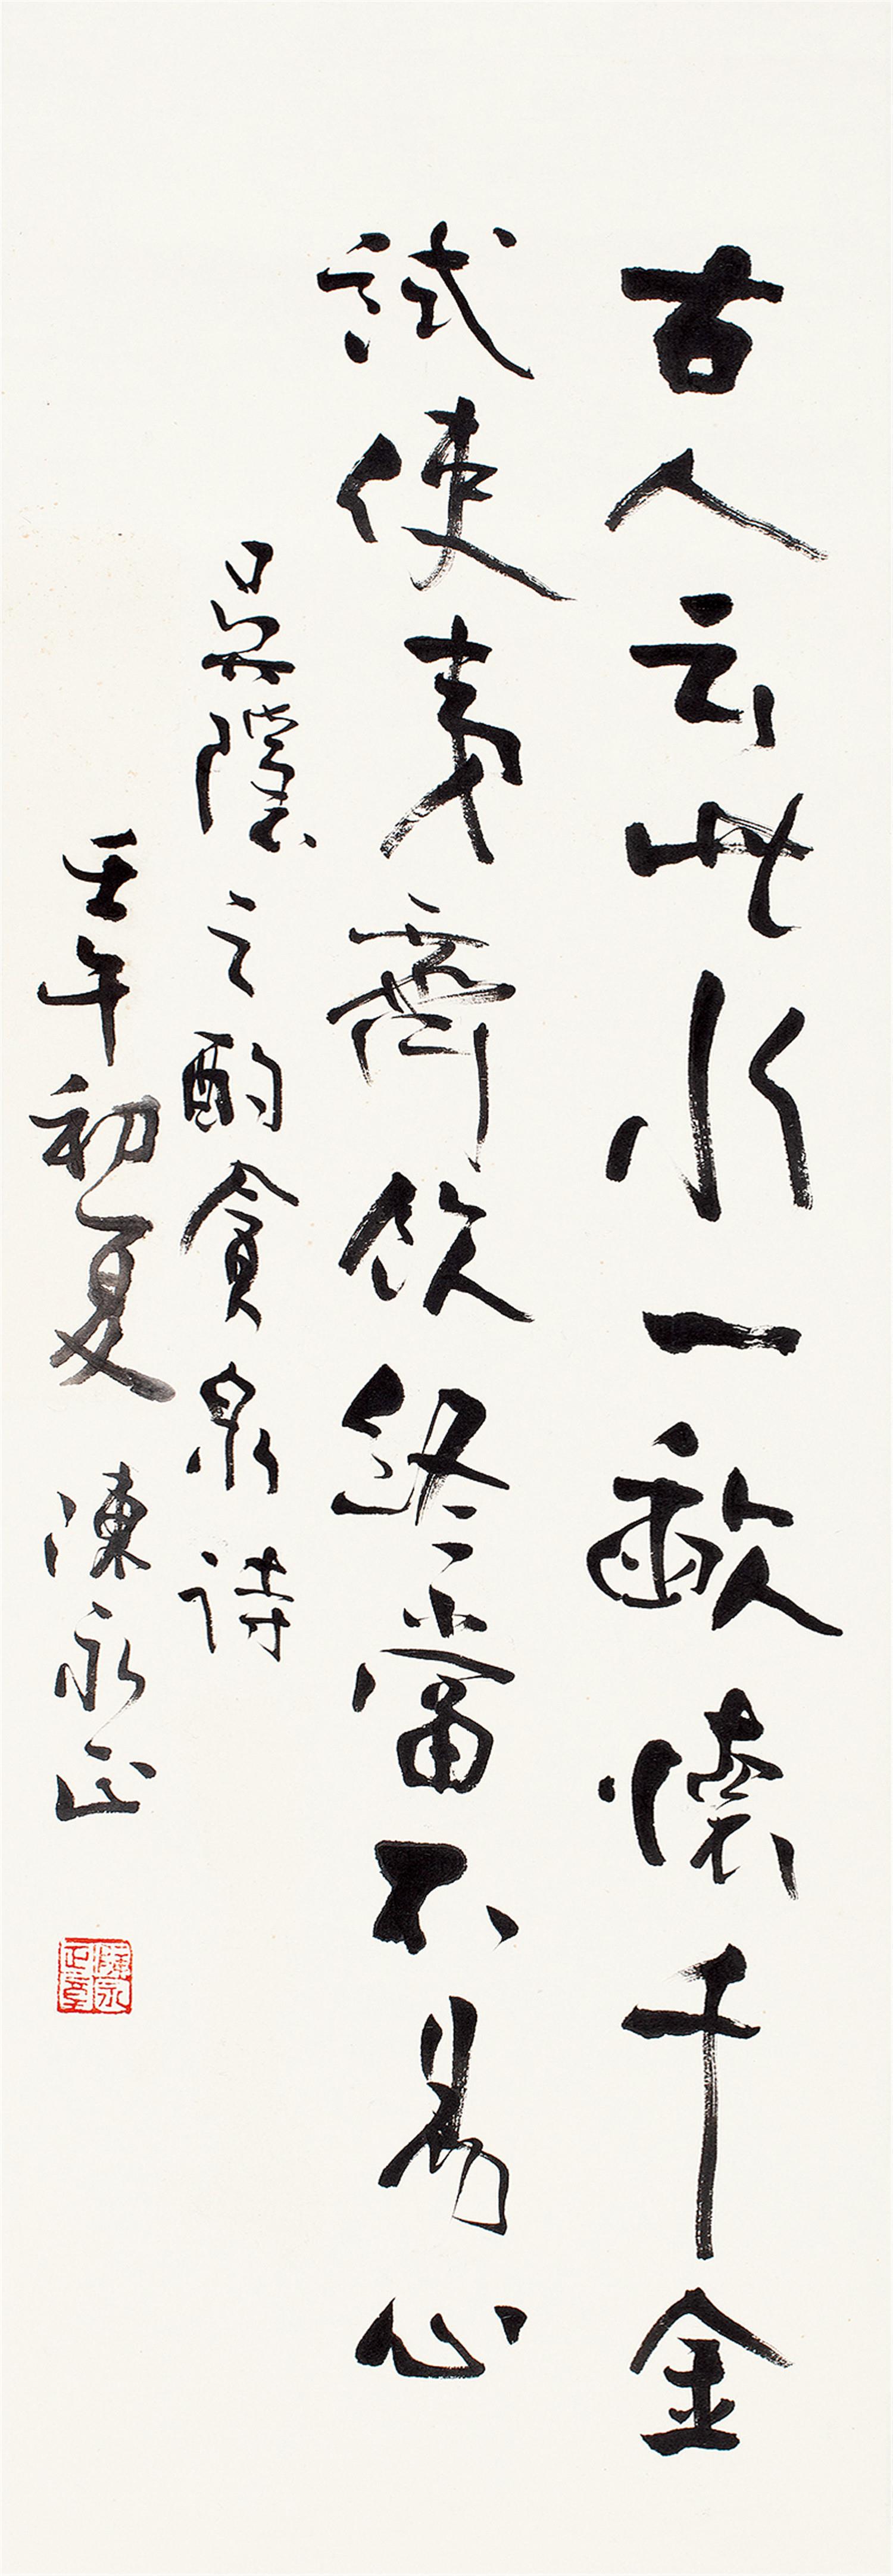 古人云此水一歃懷千金
試使夷齊飲終當不易心
吳隱之酌貪泉詩
壬午初夏 陳永正
陳永正章